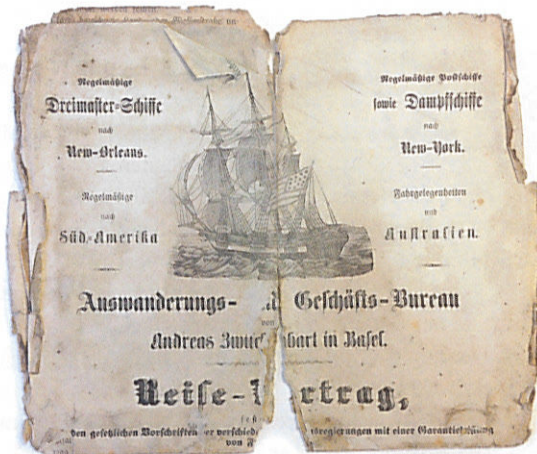 Regelmäßige
Dreimaster-Schiffe
nach
New-Orleans.
Regelmäßige
nach
Süd-Amerika
Regelmäßige Postschiffe
sowie Dampfschiffe
nach
New-York.
Fahrgelegenheiten
nach
Australien.
Auswanderungs- Geschäfts-Bureau
von
Andreas in Basel.
Reise-Vertrag,
den gesetzlichen Vorschriften der mit einer
von